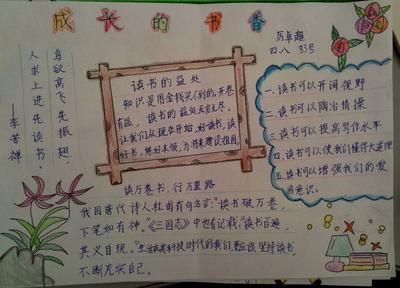 成长的书香
历卓超
四、八 33号
鸟欲高飞先振翅，
人求上进先读书。
——李苦禅
读书的益处
知识是用金钱买不到的，开卷
有益。读书的益处无穷无尽，
让我们从现在开始，好读书，读
好书，练好本领，为将来建设祖国。
一、读书可以开阔视野
二、读书可以陶冶情操
三、读书可以提高写作水平
四、读书可以使我们懂得大道理
五、读书可以增强我们的爱
国意识。
读万卷书，行万里路
我国唐代诗人杜甫有句名言："读书破万卷，
下笔如有神。"《三国志》中也有记载："读书百遍，
其义自现。"生活在高科技时代的我们，更应该坚持读书，
不断充实自己。